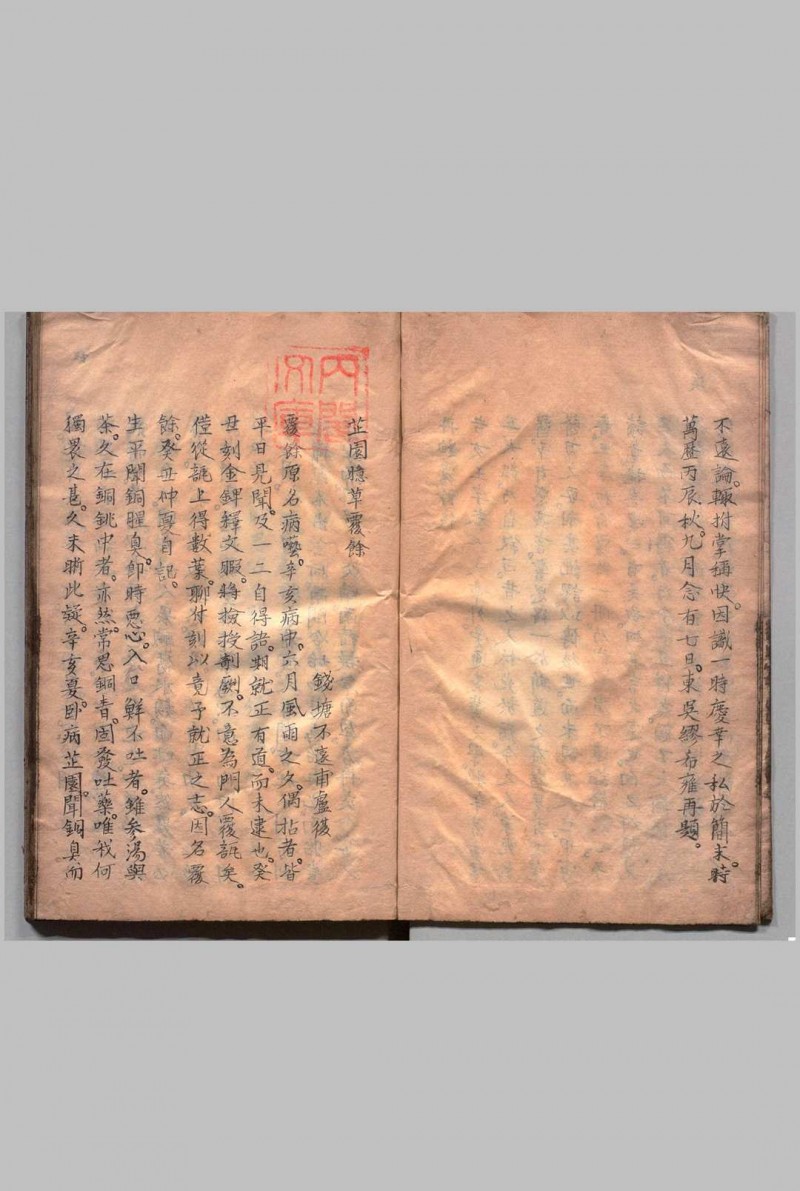 不遠論。輙拊掌稱快。因識一時慶幸之私於簡末。時
萬歷丙辰秋。九月念有七日。東吳繆希雍再題。
芷園臆草覆餘
錢塘不遠甫盧復
覆餘原名病囈。辛亥病中。六月風雨之久。偶拈者。皆
平日見聞。及一二自得語。期就正有道。而未逮也。癸
丑刻金錍釋文暇。將撿授剞劂。不意為門人覆瓿矣。
僅從瓿上得數葉。聊付刻以竟予就正之志。因名覆
餘。癸丑仲夏自記。
生平聞銅腥臭。卽時惡心。入口鮮不吐者。雖參湯與
茶。久在銅銚中者。亦然。常思銅青。固發吐藥。唯我何
獨畏之甚。久未晰此疑。辛亥夏卧病芷園。聞銅臭而
內閣
文庫